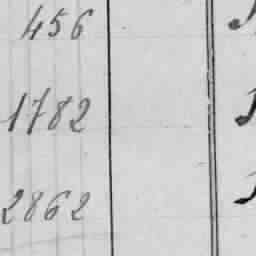 456
1782
2862